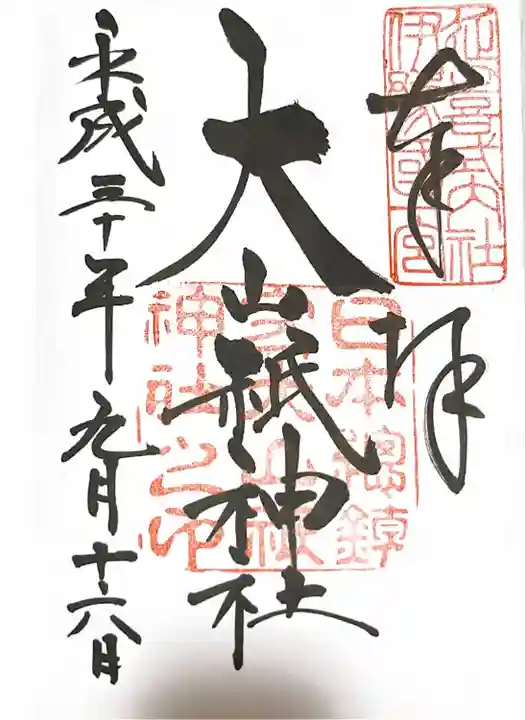 奉拝
延喜式大社
伊豫國一宮
大山祇神社
日本總鎮
守大山祇
神社之印
平成三十年九月十六日